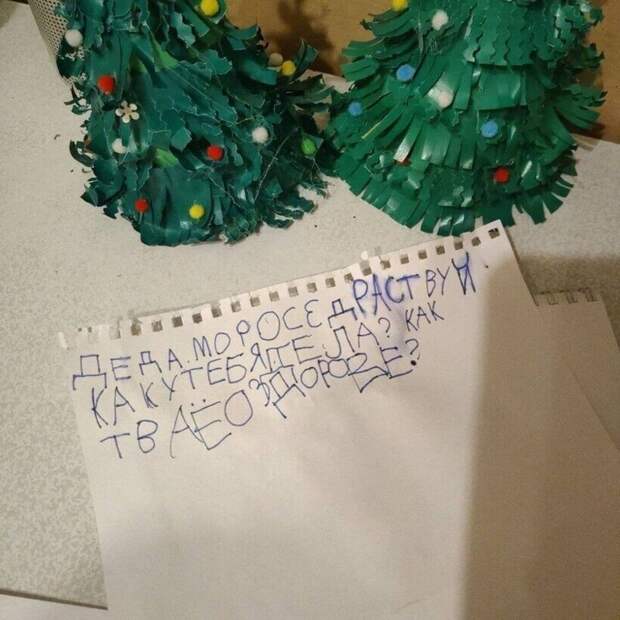 ДЕДА.МОРОСЕ ДРАСТВУЙ.
КАК УТЕБЯ ДЕ ЛА? КАК
ТВАЁ ОЗДОРОВЕ?